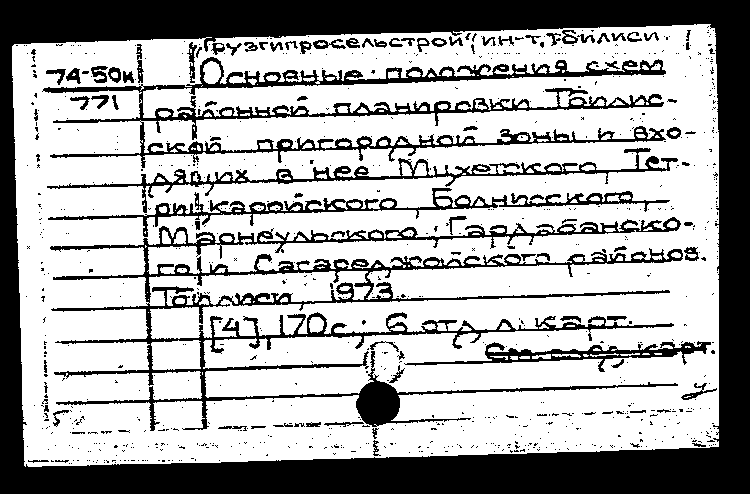 „Грузгипросельстрой", ин-т, Тбилиси.
74-50к
771
Основные положения схем
районной планировки Тбилис-
ской пригородной зоны и вхо-
дящих в нее Мцхетского, Тет-
рицкаройского, Болнисского,
Марнеульского, Гардабанско-
го и Сагареджойского районов.
Тбилиси, 1973.
[4], 170 с.; 6 отд. л. карт.
См. след. карт.